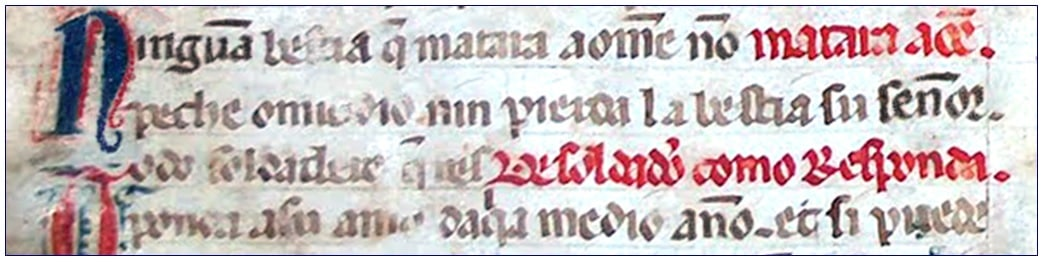 Ningũa bestia q̃ matara aom̃e nõ matara aoẽ.
peche omiçidio. nin pierda la bestia su señor.
Todo soldadero De soldado como Responda.
aSu amo daq̃a medio año. et si puede